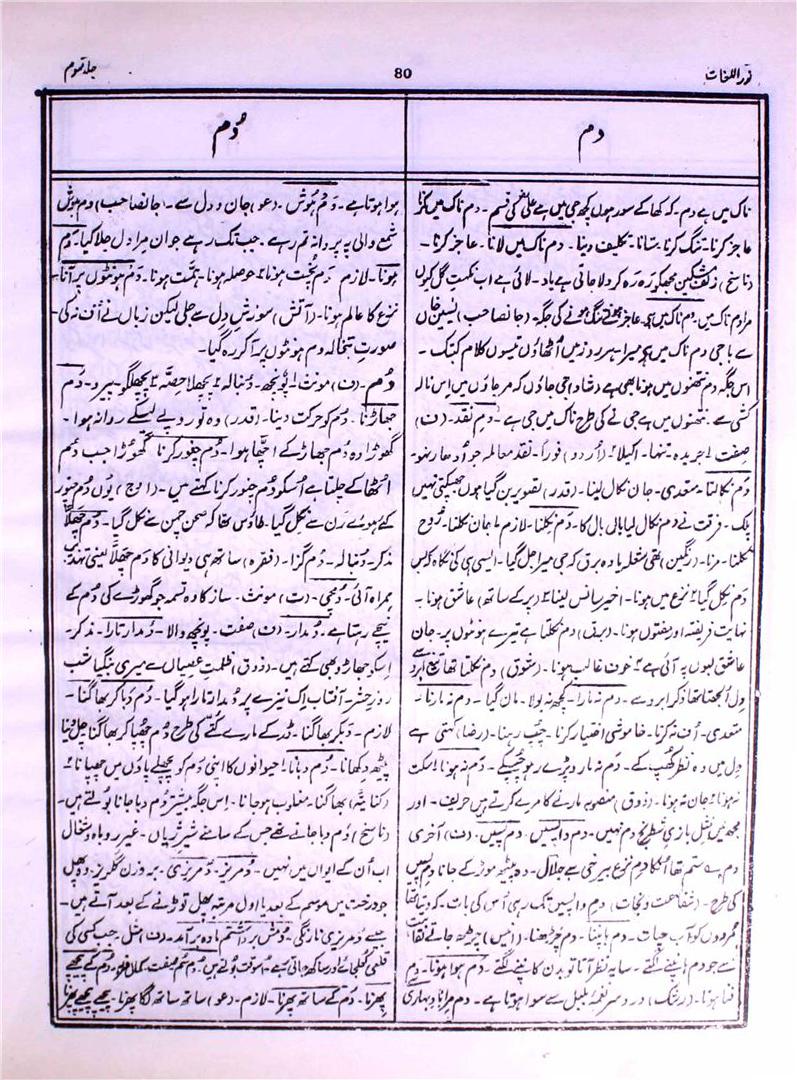 نور اللغات
80
جلد سوم
دم
دُم
ناک میں ہے دم۔ کہ کھا کے سور ہوں کچھ جی میں ہے علیؑ کی قسم۔ دم ناک میں کرنا
عاجز کرنا۔ تنگ کرنا۔ ستانا۔ تکلیف دینا۔ دم ناک میں لانا۔ عاجز کرنا۔
مراد ناک میں۔ دم ناک میں ہے۔ عاجز ہونے تنگ ہونے کی جگہ۔ (جانصاحب)
اس جگہ دم نتھنوں میں ہونا بھی ہے
کشی سے۔ نتھنوں میں ہے جی نے کی طرح ناک میں جی ہے۔ دم نقد۔ (ف)
صفت ۱ جریدہ۔ تنہا۔ اکیلا ۲ (اُردو) فوراً۔ نقد معاملہ جو اُدھار نہو۔
دم نکالنا۔ متعدی۔ جان نکال لینا۔ (قدر) تصویر بن گیا ہوں جھپکتی نہیں
پلک۔ فرقت نے دم نکال لیا بال بال کا۔ دم نکلنا۔ لازم ۱ جان نکلنا۔ روح
نکلنا۔ مرنا۔ (رنگین) تھی شعلہ یا وہ برق کہ جی میرا جل گیا۔ ایسی ہی کی نگاہ کہ بس
دم نکل گیا ۲ نزع میں ہونا۔ اخیر سانس لینا ۳ (پر کے ساتھ) عاشق ہونا۔
نہایت فریفتہ اور مفتوں ہونا۔ (برق) دم نکلتا ہے تیرے ہونٹوں پر۔ جان
عاشق لبوں پہ آئی ہے ۴ خوف غالب ہونا۔ (شوق) دم نکلتا تھا تیغ ابرو سے
دل اُلجھتا تھا ذکر ابرو سے۔ دم نہ مارا۔ کچھ نہ بولا۔ مان گیا۔ دم نہ مارنا۔
متعدی۔ اُف نہ کرنا۔ خاموشی اختیار کرنا۔ چپ رہنا۔ (رضا) کہتی ہے
دل میں وہ نظر کھُب کے۔ دم نہ مارو پڑے رہو چپکے۔ دم نہ ہونا ۱ سکت
نہ ہونا ۲ جان نہ ہونا۔ (ذوق) منصوبہ مارنے کا مرے کرتے ہیں حریف۔ اور
مجھ میں مثل بازی شطرنج دم نہیں۔ دم واپسیں۔ دم پسیں۔ (ف) آخری
دم ہے ستم تھا اُنکا دم نزع بیرخی سے جلال۔ وہ پیٹھ موڑ کے جانا دم پسیں
کی طرح۔ دم واپسیں تک رہی اُس کی بات۔ کہ دنیا تھا
مُردوں کو آب حیات۔ دم ہانپنا۔ دم چڑھنا۔ (انیس) چڑھ جاتے تھے
نے جو دم ہانپنے لگتے۔ سایہ نظر آتا تو بدن کانپنے لگتے۔ دم ہوا ہونا۔ دم
فنا ہونا۔ (رشک) درد سر نغمۂ بلبل سے سوا ہوتا ہے۔ دم مرا
ہوا ہوتا ہے۔ دم ہوش۔ (عو) جان و دل سے۔ (جانصاحب) دم ہوش
شمع والی پہ پروانہ تم رہے۔ جب تک رہے جوان مرا دل جلا کیا۔ دم
ہونا۔ لازم۔ دم بخت ہونا ۲ حوصلہ ہونا۔ ہمت ہونا۔ دم ہونٹوں پر آنا۔
نزع کا عالم ہونا۔ (آتش) سوزش دل سے جلی لیکن زباں نے اُف نہ کی۔
صورت تبخالہ دم ہونٹوں پر آ کر رہ گیا۔
دُم۔ (ف) مونث ۱ پونچھ۔ دنبالہ ۲ پچھلا حصّہ ۳ پچھلگو۔ پیرو۔ دُم
جھاڑنا۔ دُم کو حرکت دینا۔ (قدر) وہ تو روپے لیکے روانہ ہوا۔
گھوڑا وہ دُم جھاڑ کے اچھا ہوا۔ دُم چنور کرنا گھوڑا جب دُم
اُٹھا کے چلتا ہے اُسکو دُم چنور کرنا کہتے ہیں۔ (اوج) یوں دُم چنور
کئے ہوئے رن سے نکل گیا۔ طاؤس تھا کہ صحن چمن سے نکل گیا۔ دُم چھلّا
مذکر۔ دنبالہ۔ دُم گزا۔ (فقرہ) ساتھ ہی دیوانی کا دُم چھلّا یعنی تہذیب
ہمراہ آئی۔ دُمچی۔ (ت) مونث۔ ساز کا وہ تسمہ جو گھوڑے کی دُم کے
نیچے رہتا ہے۔ دُمدار۔ (ف) صفت۔ پونچھ والا۔ دُمدار تارا۔ مذکر۔
اسکو جھاڑو بھی کہتے ہیں۔ (ذوق) ظلمت عصیاں سے میری بنگیا شب
روز حشر۔ آفتاب اِک نیزے پر دُمدار تارا ہو گیا۔ دُم دبا کر بھاگنا۔
لازم۔ دبکر بھاگنا۔ ڈر کے مارے کتّے کی طرح دُم چھپا کر بھاگنا۔ چل دینا
پیٹھ دکھانا۔ دُم دبانا ۱ حیوانوں کا اپنی دُم کو پچھلے پاؤں میں چھپانا ۲
(کنایۃً) بھاگنا۔ مغلوب ہو جانا۔ اِس جگہ بیشتر دُم دبا جانا بولتے ہیں۔
(ناسخ) دُم دبا جاتے تھے جس کے سامنے شیر ژیاں۔ غیر روباہ و شغال
اب اُن کے ایواں میں نہیں۔ دُمریز۔ دُمریزی۔ بہ وزن گلریز۔ وہ پھل
جو درخت میں موسم کے بعد یا اول مرتبہ پھل توڑنے کے بعد آتے ہیں۔
جیسے دُمریزی نارنگی۔ دُمش برداشتم مادہ برآمد۔ (ف) مثل۔ جب کسی کی
قلعی کھُل جائے اور ساکھ جاتی رہے اُسوقت بولتے ہیں۔ دُم کے پیچھے
پھرنا۔ دُم کے ساتھ پھرنا۔ لازم۔ (عو) ساتھ ساتھ لگا پھرنا۔ پیچھے پیچھے پھرنا